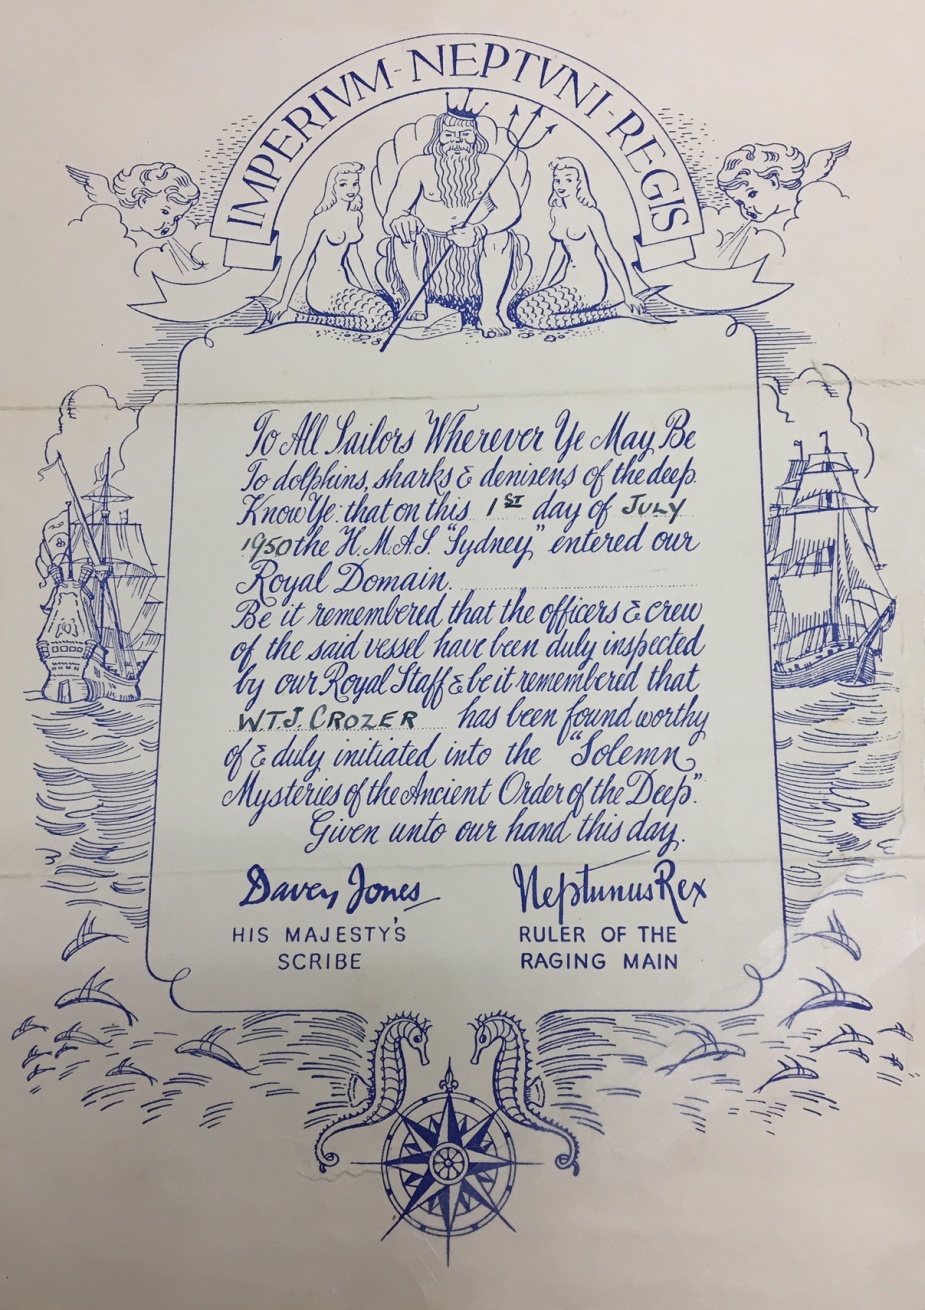 IMPERIVM-NEPTVNI-REGIS
To All Sailors Wherever Ye May Be
To dolphins, sharks & denirens of the deep.
Know Ye: that on this 1ST day of JULY
1950 the H.M.A.S. "Sydney" entered our
Royal Domain.
Be it remembered that the officers & crew
of the said vessel have been duly inspected
by our Royal Staff & be it remembered that
W.T.J. CROZER has been found worthy
of & duly initiated into the "Solemn
Mysteries of the Ancient Order of the Deep".
Given unto our hand this day.
Davey Jones
HIS MAJESTY'S
SCRIBE
Neptunus Rex
RULER OF THE
RAGING MAIN